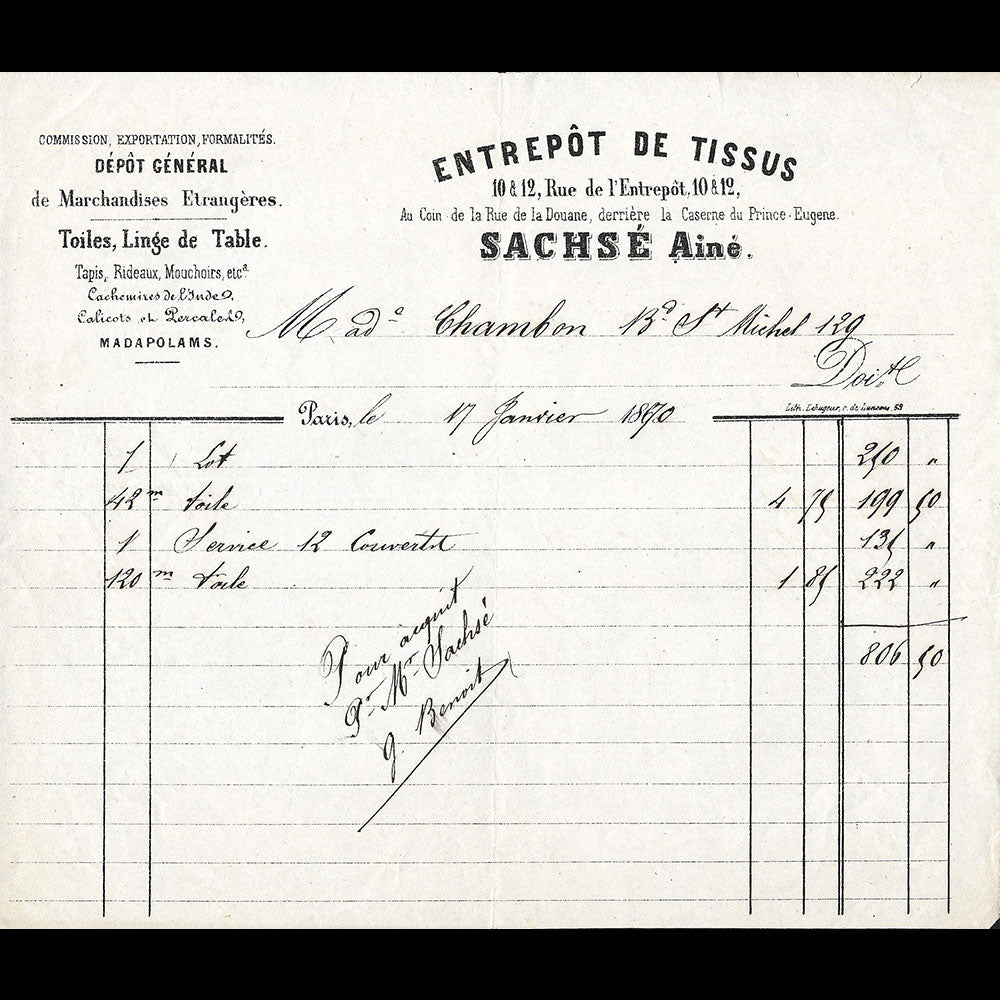 COMMISSION, EXPORTATION, FORMALITÉS.
DÉPÔT GÉNÉRAL
de Marchandises Etrangères.
Toiles, Linge de Table.
Tapis, Rideaux, Mouchoirs, etcª
Cachemires de l'Inde,
Calicots et Percales,
MADAPOLAMS.
ENTREPÔT DE TISSUS
10 & 12, Rue de l'Entrepôt, 10 & 12,
Au Coin de la Rue de la Douane, derrière la Caserne du Prince-Eugene.
SACHSÉ Ainé.
Madᵉ Chambon Bᵈ Sᵗ Michel 129
Doit
Lith. r. de Lancry, 59
Paris, le 17 Janvier 1870
1 Lot 250 "
42 m toile 4 75 199 50
1 Service 12 Couverts 135 "
120 m toile 1 85 222 "
806 50
Pour acquit
Pʳ Mʳ Sachsé
G. Benoit